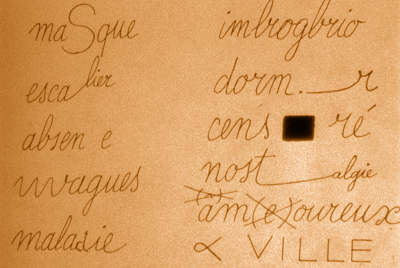 maSque
escalier
absen e
vvvagues
malasie
imbrogbrio
dorm. r
cens ré
nost algie
am(e)oureux
∝ VILLE